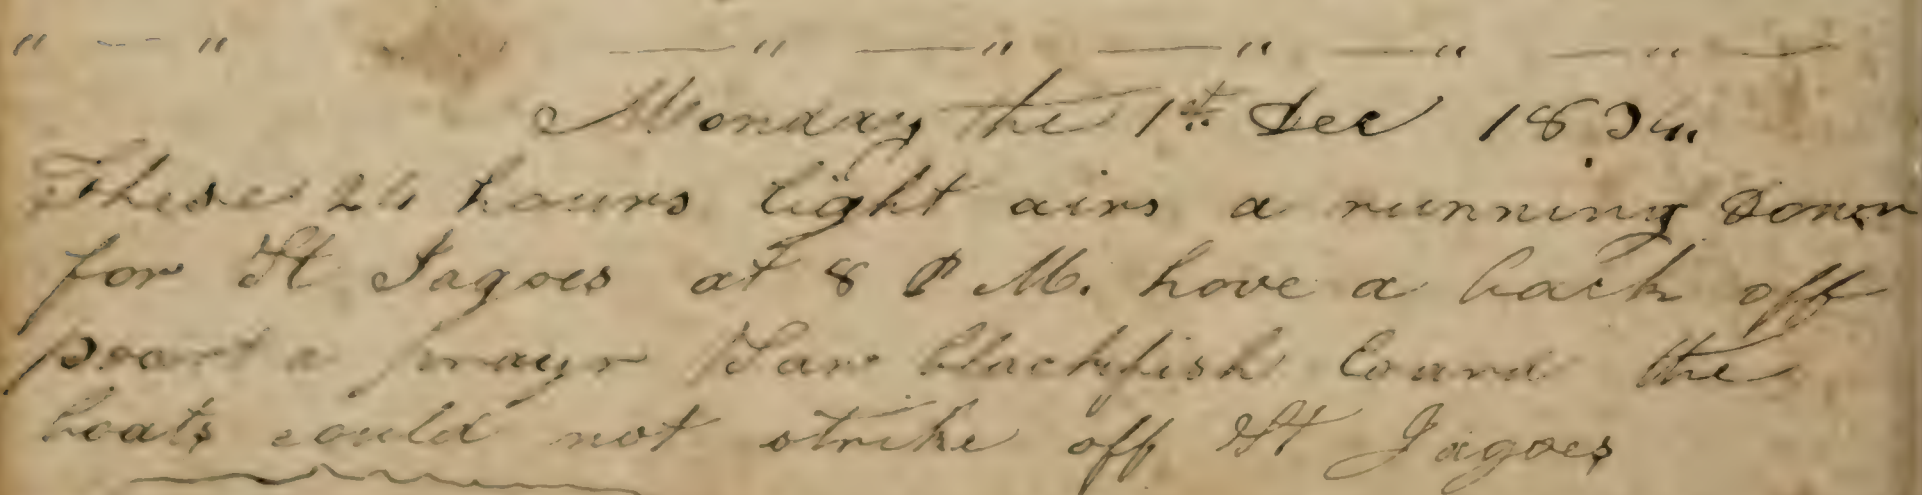 " — " — " — " — " — " — " —
Monday the 1st Dec 1834
These 24 hours light airs a running Down
for St Jagoes at 8 P M. hove a back off
porta prayr Saw blackfish Lowrd the
boats could not strike off St Jagoes